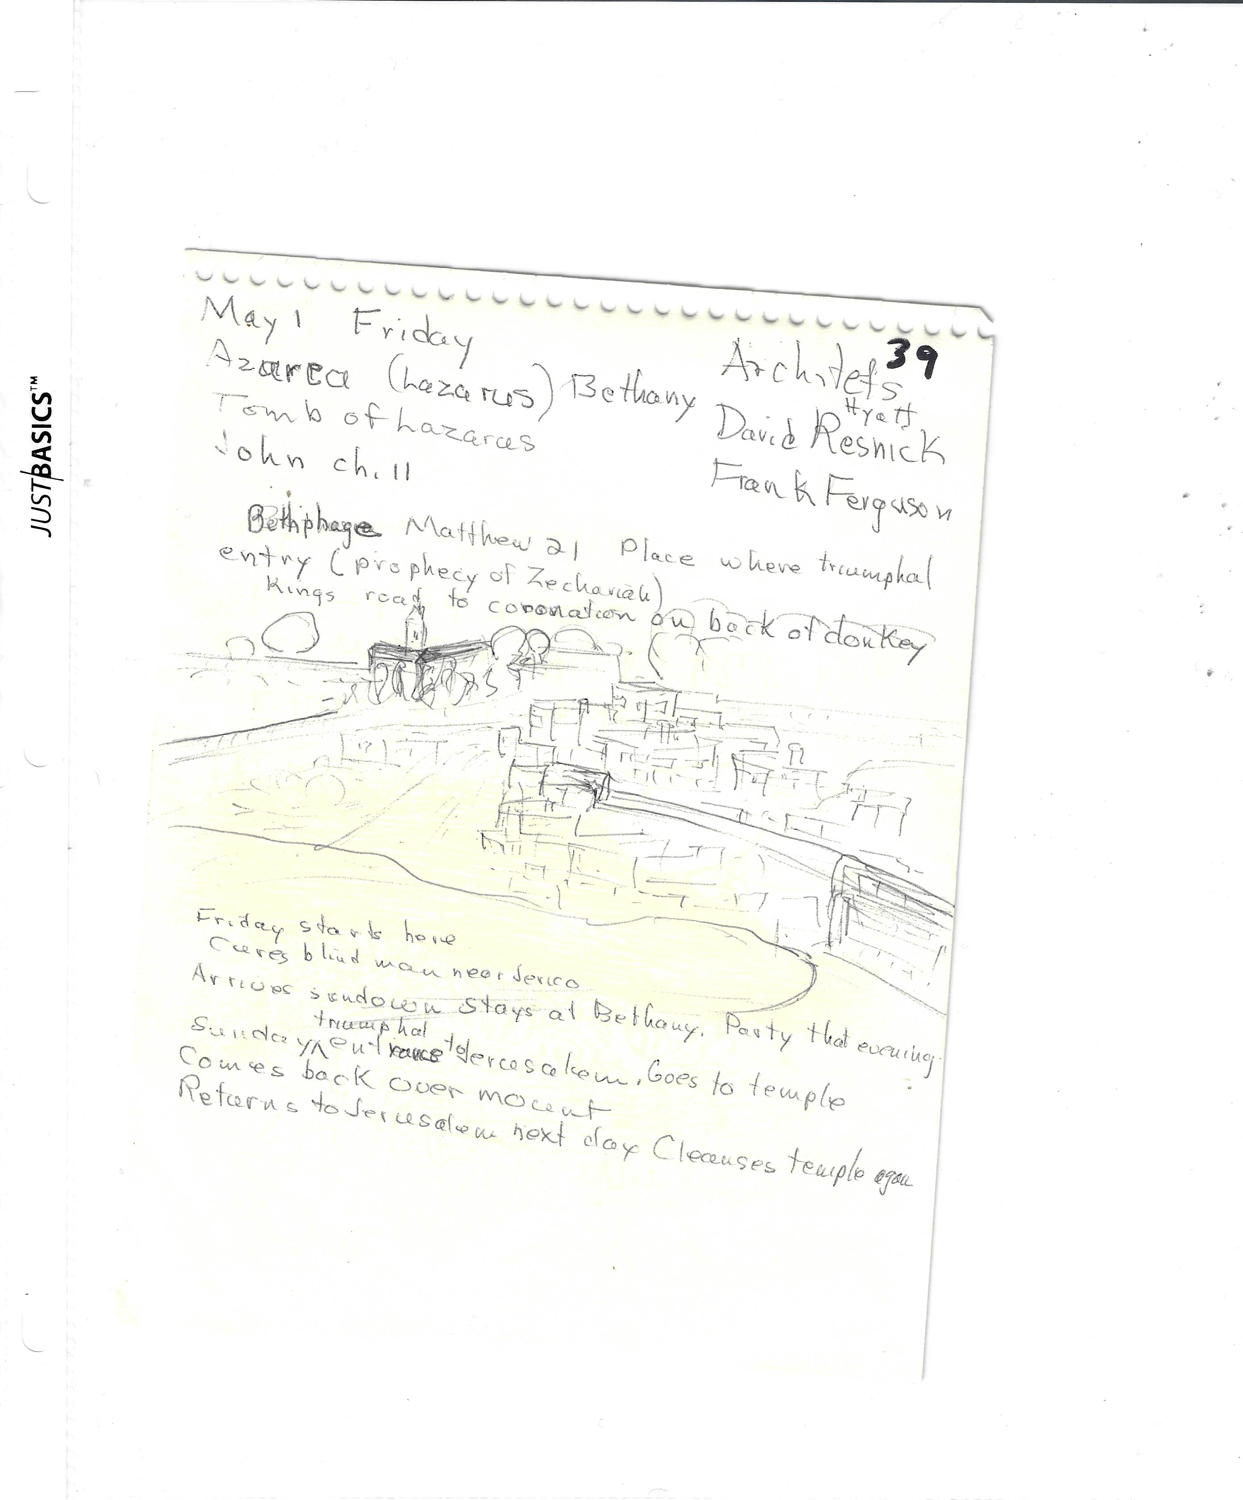 JUSTBASICS™
39
May 1 Friday
Azarea (Lazarus) Bethany
Tomb of Lazarus
John ch. 11
Architets
Hyatt
David Resnick
Frank Ferguson
Bethphage Matthew 21 Place where triumphal
entry (prophecy of Zechariah)
Kings road to coronation on back of donkey
Friday starts here
Cures blind man near Jerico
Arrives sundown stays at Bethany. Party that evening.
triumphal
Sunday ^ entrance to Jerusalem. Goes to temple
Comes back over mount
Returns to Jerusalem next day Cleanses temple again